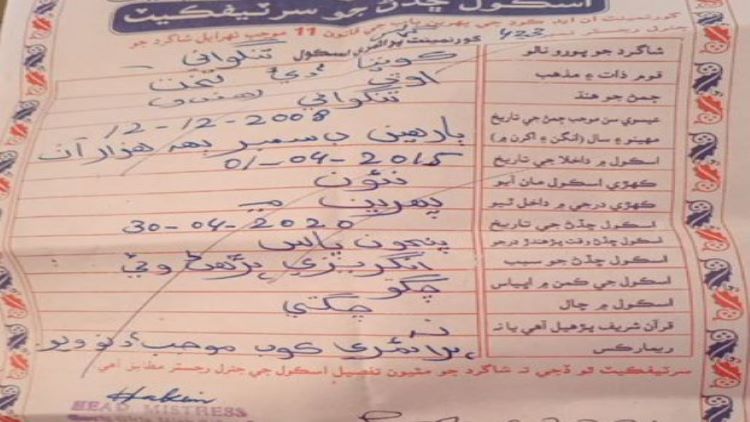 اسڪول ڇڏڻ جو سرٽيفڪيٽ
گورنمينٽ آف ايڊ ڪوڊ جي پهرين باب جي قانون 11 موجب ٺهرايل شاگرد جو
جنرل رجسٽر نمبر 423 گورنمينٽ پرائمري اسڪول ٽنگواڻي
شاگرد جو پورو نالو
قوم ذات ۽ مذهب
ڄمڻ جو هنڌ ٽنگواڻي
عيسوي سن موجب ڄمڻ جي تاريخ 12-12-2008
مهينو ۽ سال (انگن ۽ اکرن ۾) ٻارهين ڊسمبر ٻه هزار اٺ
اسڪول ۾ داخلا جي تاريخ 01-04-2015
ڪهڙي اسڪول مان آيو نئون
ڪهڙي درجي ۾ داخل ٿيو پهرين ۾
اسڪول ڇڏڻ جي تاريخ 30-04-2020
اسڪول ڇڏڻ وقت پڙهندڙ درجو پنجون پاس
اسڪول ڇڏڻ جو سبب انگريزي پڙهڻ وڃي
اسڪول جي ڪمن ۾ اڀياس چڱو
اسڪول ۾ چال چڱي
قرآن شريف پڙهيل آهي يا نہ نہ
ريمارڪس پرائمري ڪوڊ موجب ڏنو ويو
سرٽيفڪيٽ ٿو ڏجي تہ شاگرد جو مٿيون تفصيل اسڪول جي جنرل رجسٽر مطابق آهي
Hakim
HEAD MISTRESS